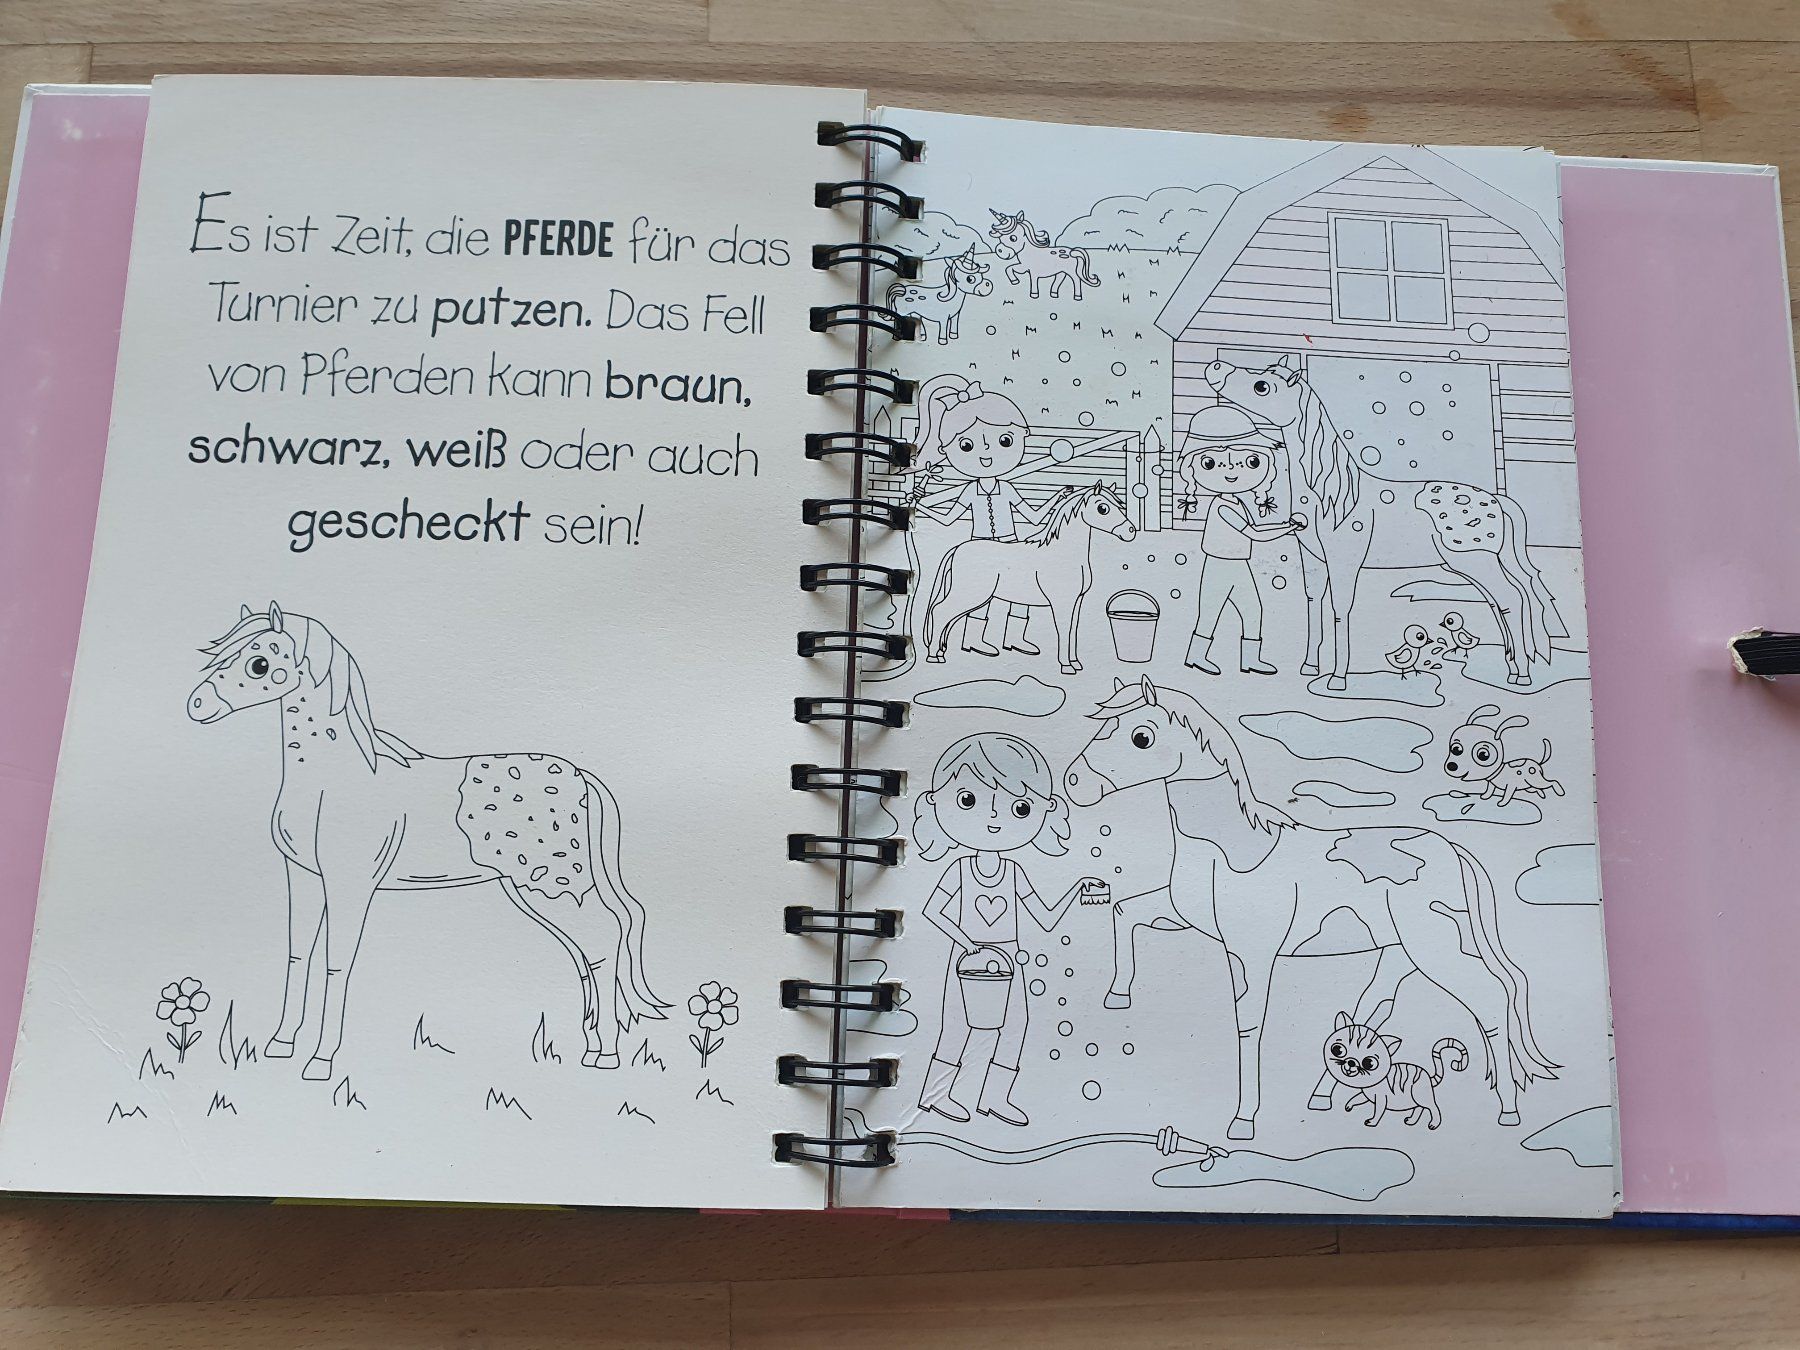 Es ist Zeit, die PFERDE für das
Turnier zu putzen. Das Fell
von Pferden kann braun,
schwarz, weiß oder auch
gescheckt sein!